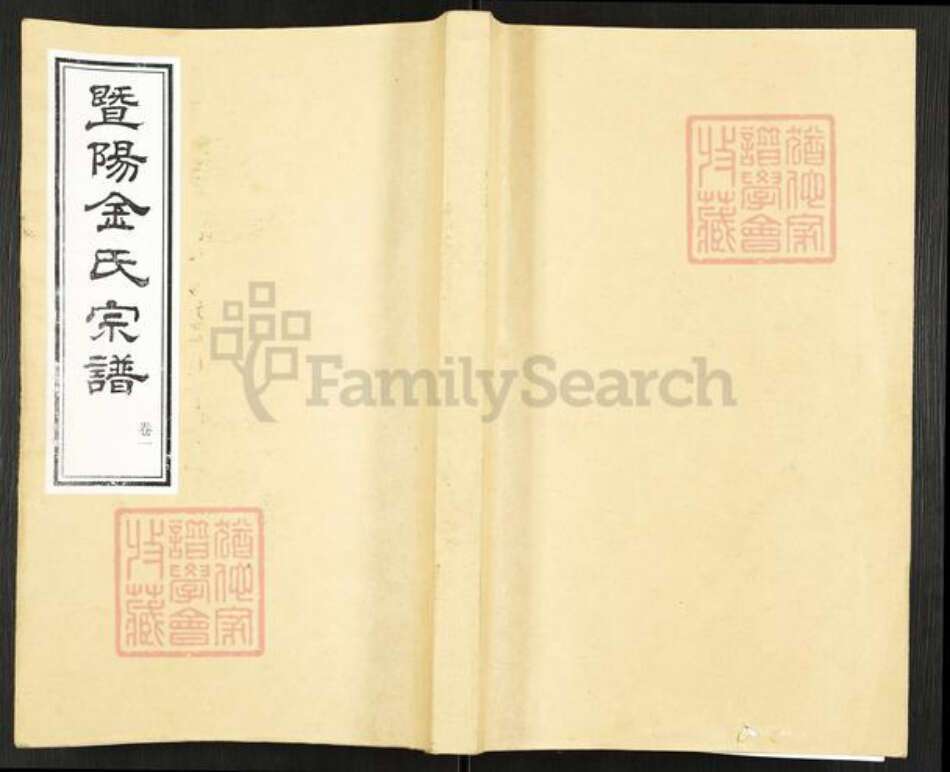 暨陽金氏宗譜
卷一
FamilySearch
猶他家
譜學會
收藏
猶他家
譜學會
收藏